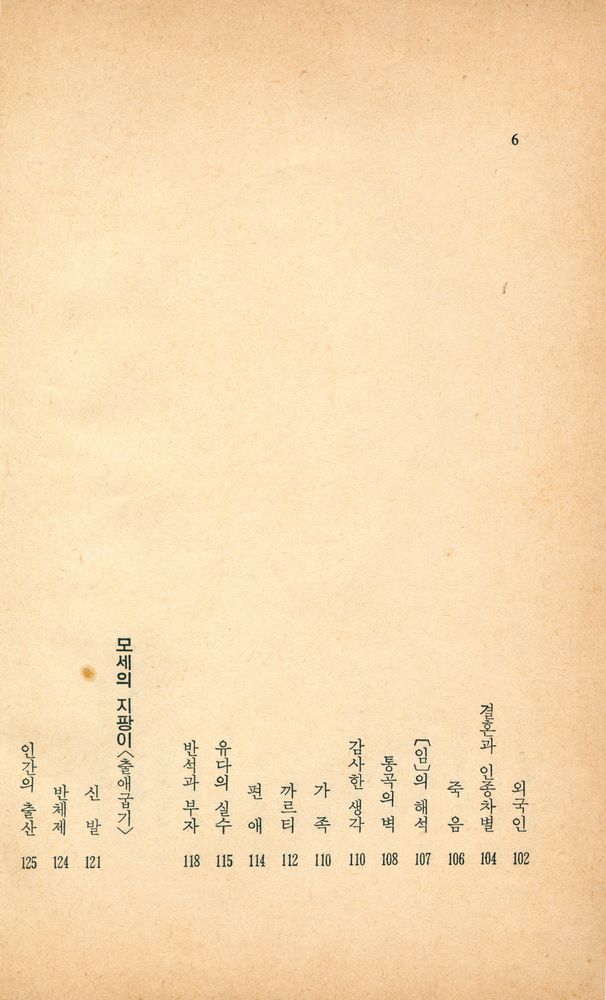 6
외국인 102
결혼과 인종차별 104
죽음 106
〔임〕의 해석 107
통곡의 벽 108
감사한 생각 110
가족 110
까르티 112
편애 114
유다의 실수 115
반석과 부자 118
모세의 지팡이〈출애굽기〉
신발 121
반체제 124
인간의 출산 125